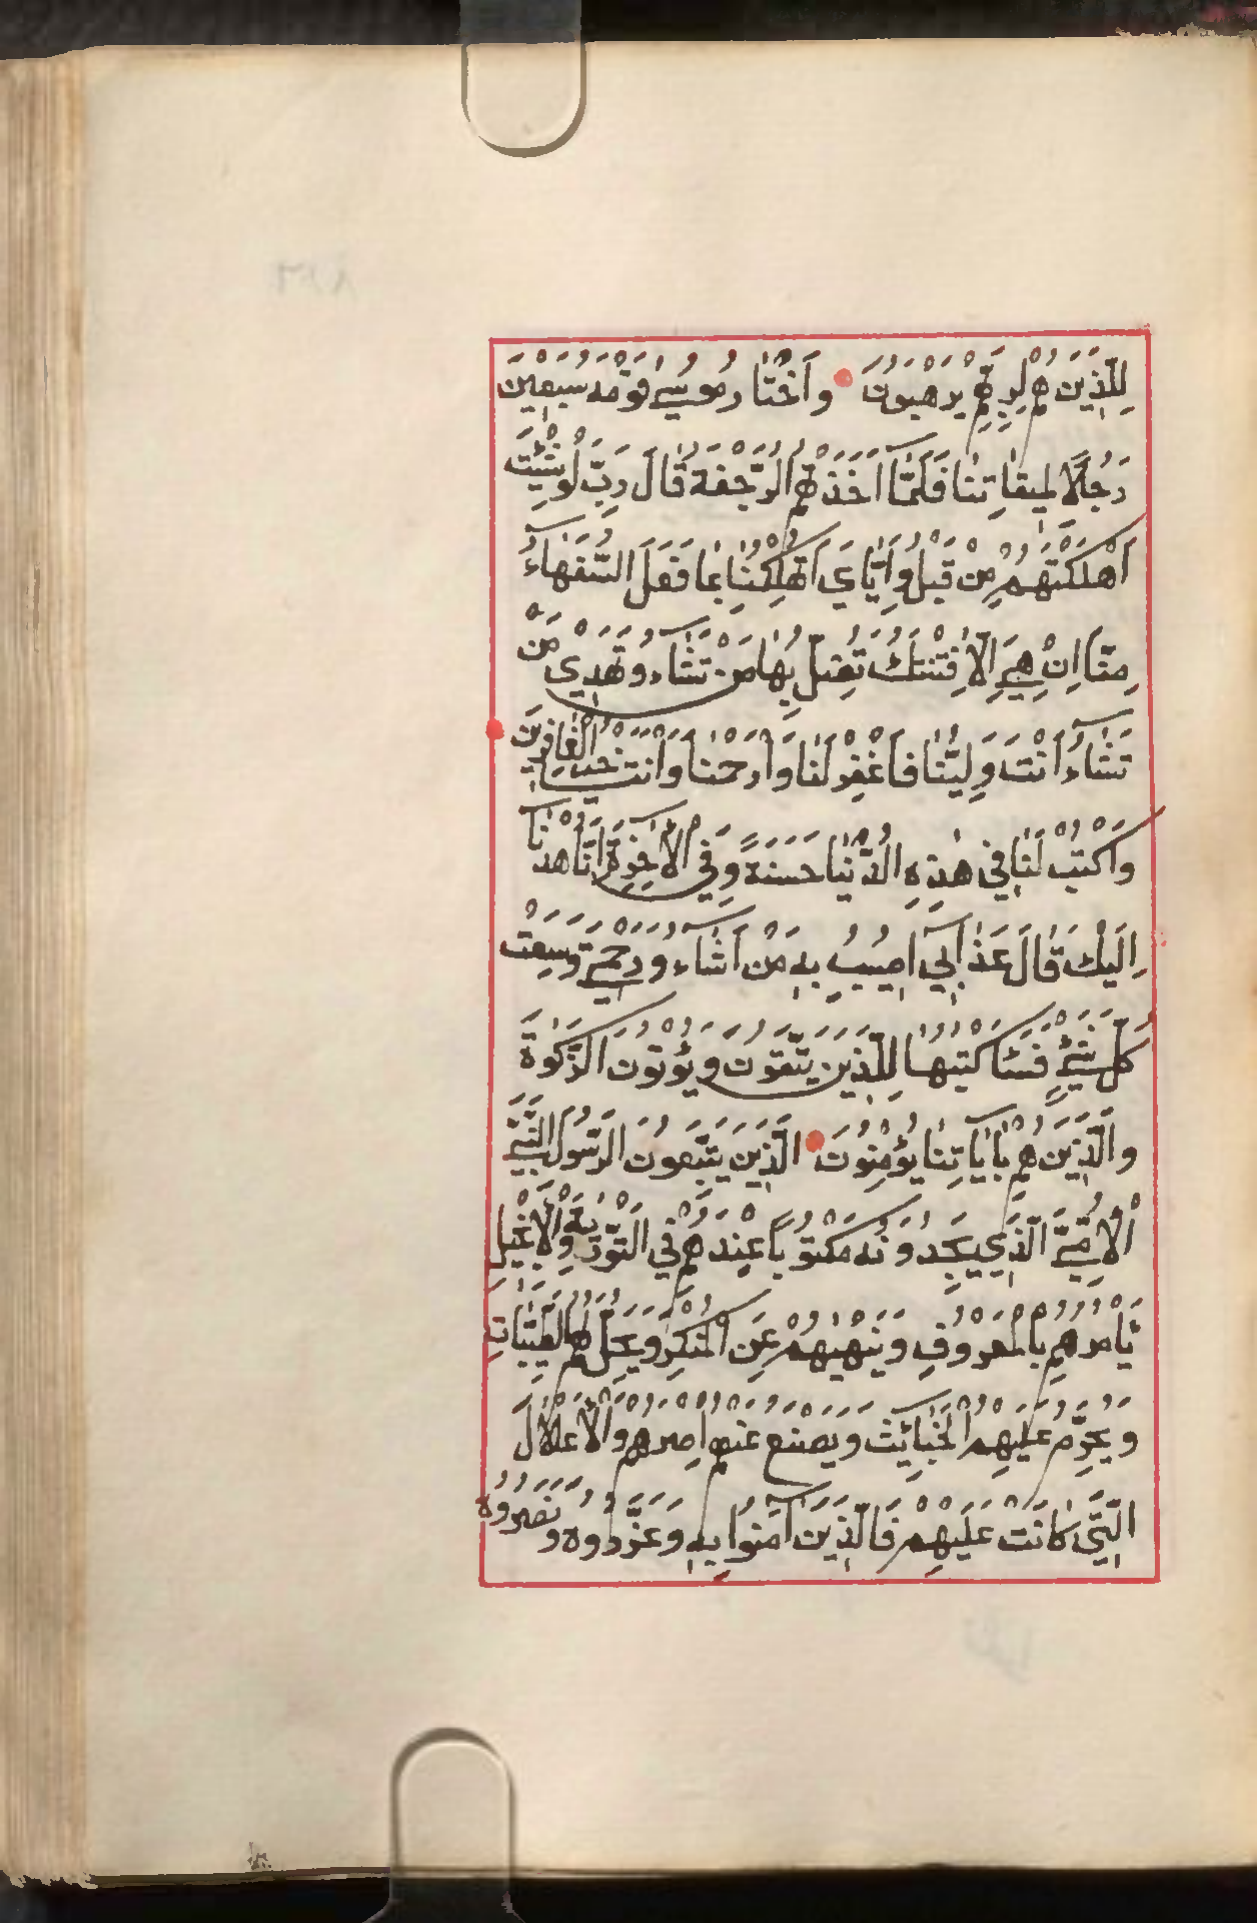 لِلَّذِينَ هُمْ لِرَبِّهِمْ يَرْهَبُونَ وَاخْتَارَ مُوسَى قَوْمَهُ سَبْعِينَ
رَجُلًا لِمِيقَاتِنَا فَلَمَّا أَخَذَتْهُمُ الرَّجْفَةُ قَالَ رَبِّ لَوْ شِئْتَ
أَهْلَكْتَهُمْ مِنْ قَبْلُ وَإِيَّايَ أَتُهْلِكُنَا بِمَا فَعَلَ السُّفَهَاءُ
مِنَّا إِنْ هِيَ إِلَّا فِتْنَتُكَ تُضِلُّ بِهَا مَنْ تَشَاءُ وَتَهْدِي مَنْ
تَشَاءُ أَنْتَ وَلِيُّنَا فَاغْفِرْ لَنَا وَارْحَمْنَا وَأَنْتَ خَيْرُ الْغَافِرِينَ
وَاكْتُبْ لَنَا فِي هَذِهِ الدُّنْيَا حَسَنَةً وَفِي الْآخِرَةِ إِنَّا هُدْنَا
إِلَيْكَ قَالَ عَذَابِي أُصِيبُ بِهِ مَنْ أَشَاءُ وَرَحْمَتِي وَسِعَتْ
كُلَّ شَيْءٍ فَسَأَكْتُبُهَا لِلَّذِينَ يَتَّقُونَ وَيُؤْتُونَ الزَّكَوٰةَ
وَالَّذِينَ هُمْ بِآيَاتِنَا يُؤْمِنُونَ الَّذِينَ يَتَّبِعُونَ الرَّسُولَ النَّبِيَّ
الْأُمِّيَّ الَّذِي يَجِدُونَهُ مَكْتُوبًا عِنْدَهُمْ فِي التَّوْرَيةِ وَالْإِنْجِيلِ
يَأْمُرُهُمْ بِالْمَعْرُوفِ وَيَنْهَيهُمْ عَنِ الْمُنْكَرِ وَيُحِلُّ لَهُمُ الطَّيِّبَاتِ
وَيُحَرِّمُ عَلَيْهِمُ الْخَبَائِثَ وَيَضَعُ عَنْهُمْ إِصْرَهُمْ وَالْأَغْلَالَ
الَّتِي كَانَتْ عَلَيْهِمْ فَالَّذِينَ آمَنُوا بِهِ وَعَزَّرُوهُ وَنَصَرُوهُ